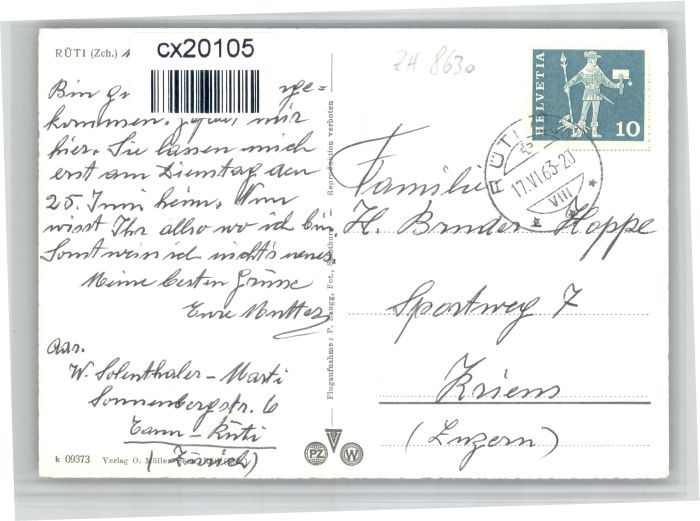 RÜTI (Zch.)
cx20105
ZH 8630
HELVETIA
10
RÜTI
17.VI.63-20
VIII
Bin
kommen. mir
hier. Sie lassen mich
erst am Dienstag den
25. Juni heim. Nun
wisst Ihr allso wo ich bin
Sonst weis ich nichts neues
Meine besten Grüsse
Eure Mutter
Adr.
W. Solenthaler-Marti
Sonnenbergstr. 6
Tann-Rüti
(Zürich)
Familie
H. Bruder Hoppe
Sportweg 7
Kriens
(Luzern)
Flugaufnahme: P. Zaugg, Fot., Solothurn Reproduktion verboten
k 09373 Verlag O. Müller
PZ
W